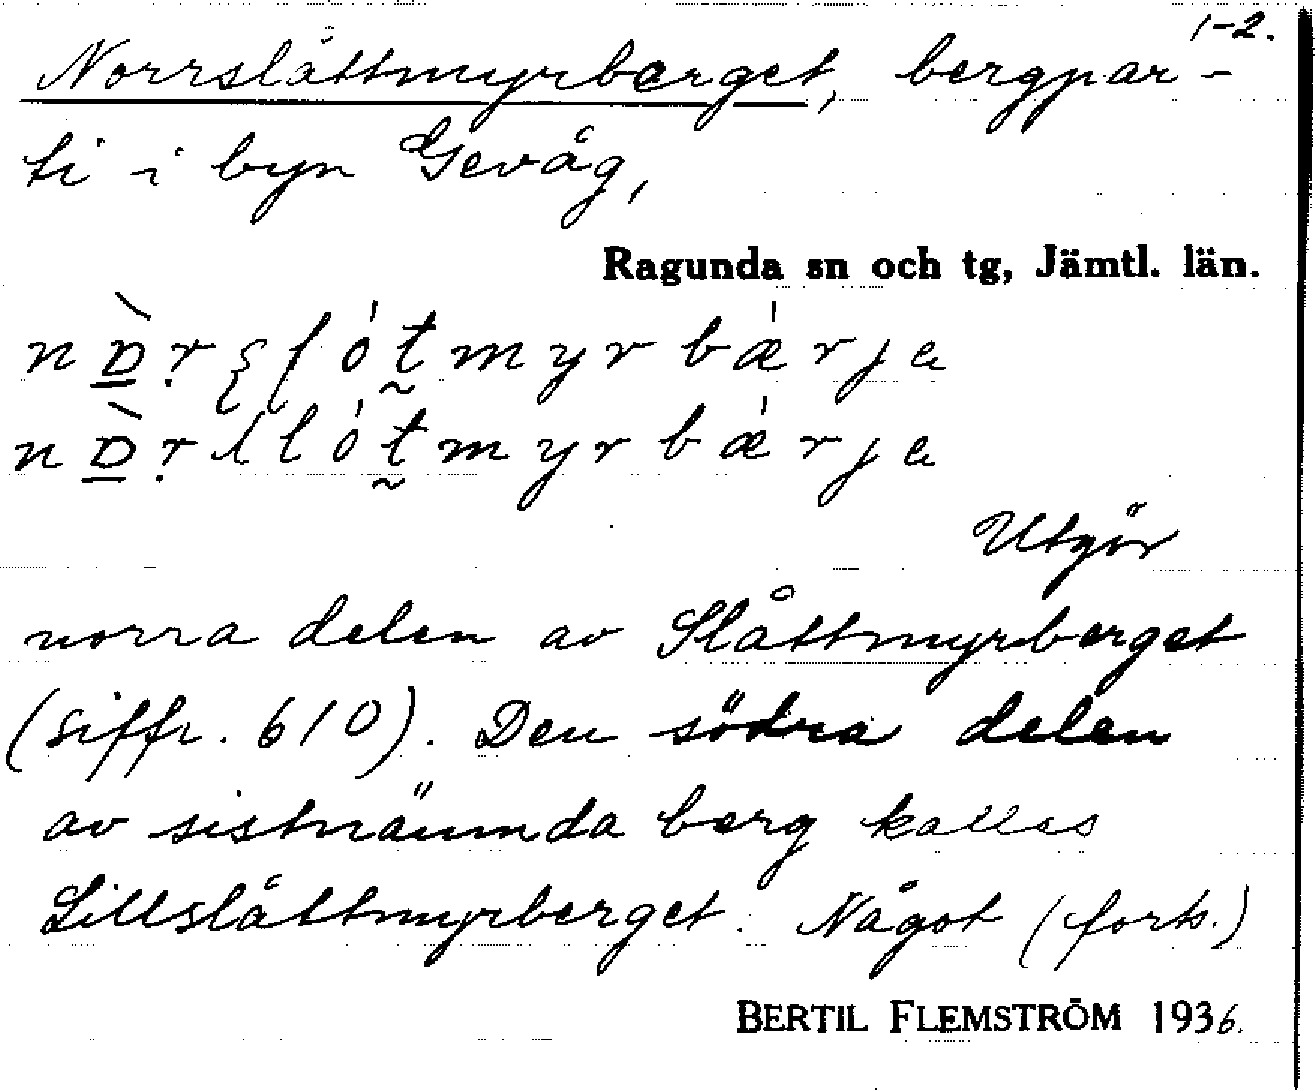 1-2.
Norrslåttmyrberget, bergpar-
ti i byn Gevåg,
Ragunda sn och tg, Jämtl. län.
Utgör
norra delen av Slåttmyrberget
(siffr. 610). Den södra delen
av sistnämnda berg kallas
Lillslåttmyrberget. Något (forts.)
BERTIL FLEMSTRÖM 1936.